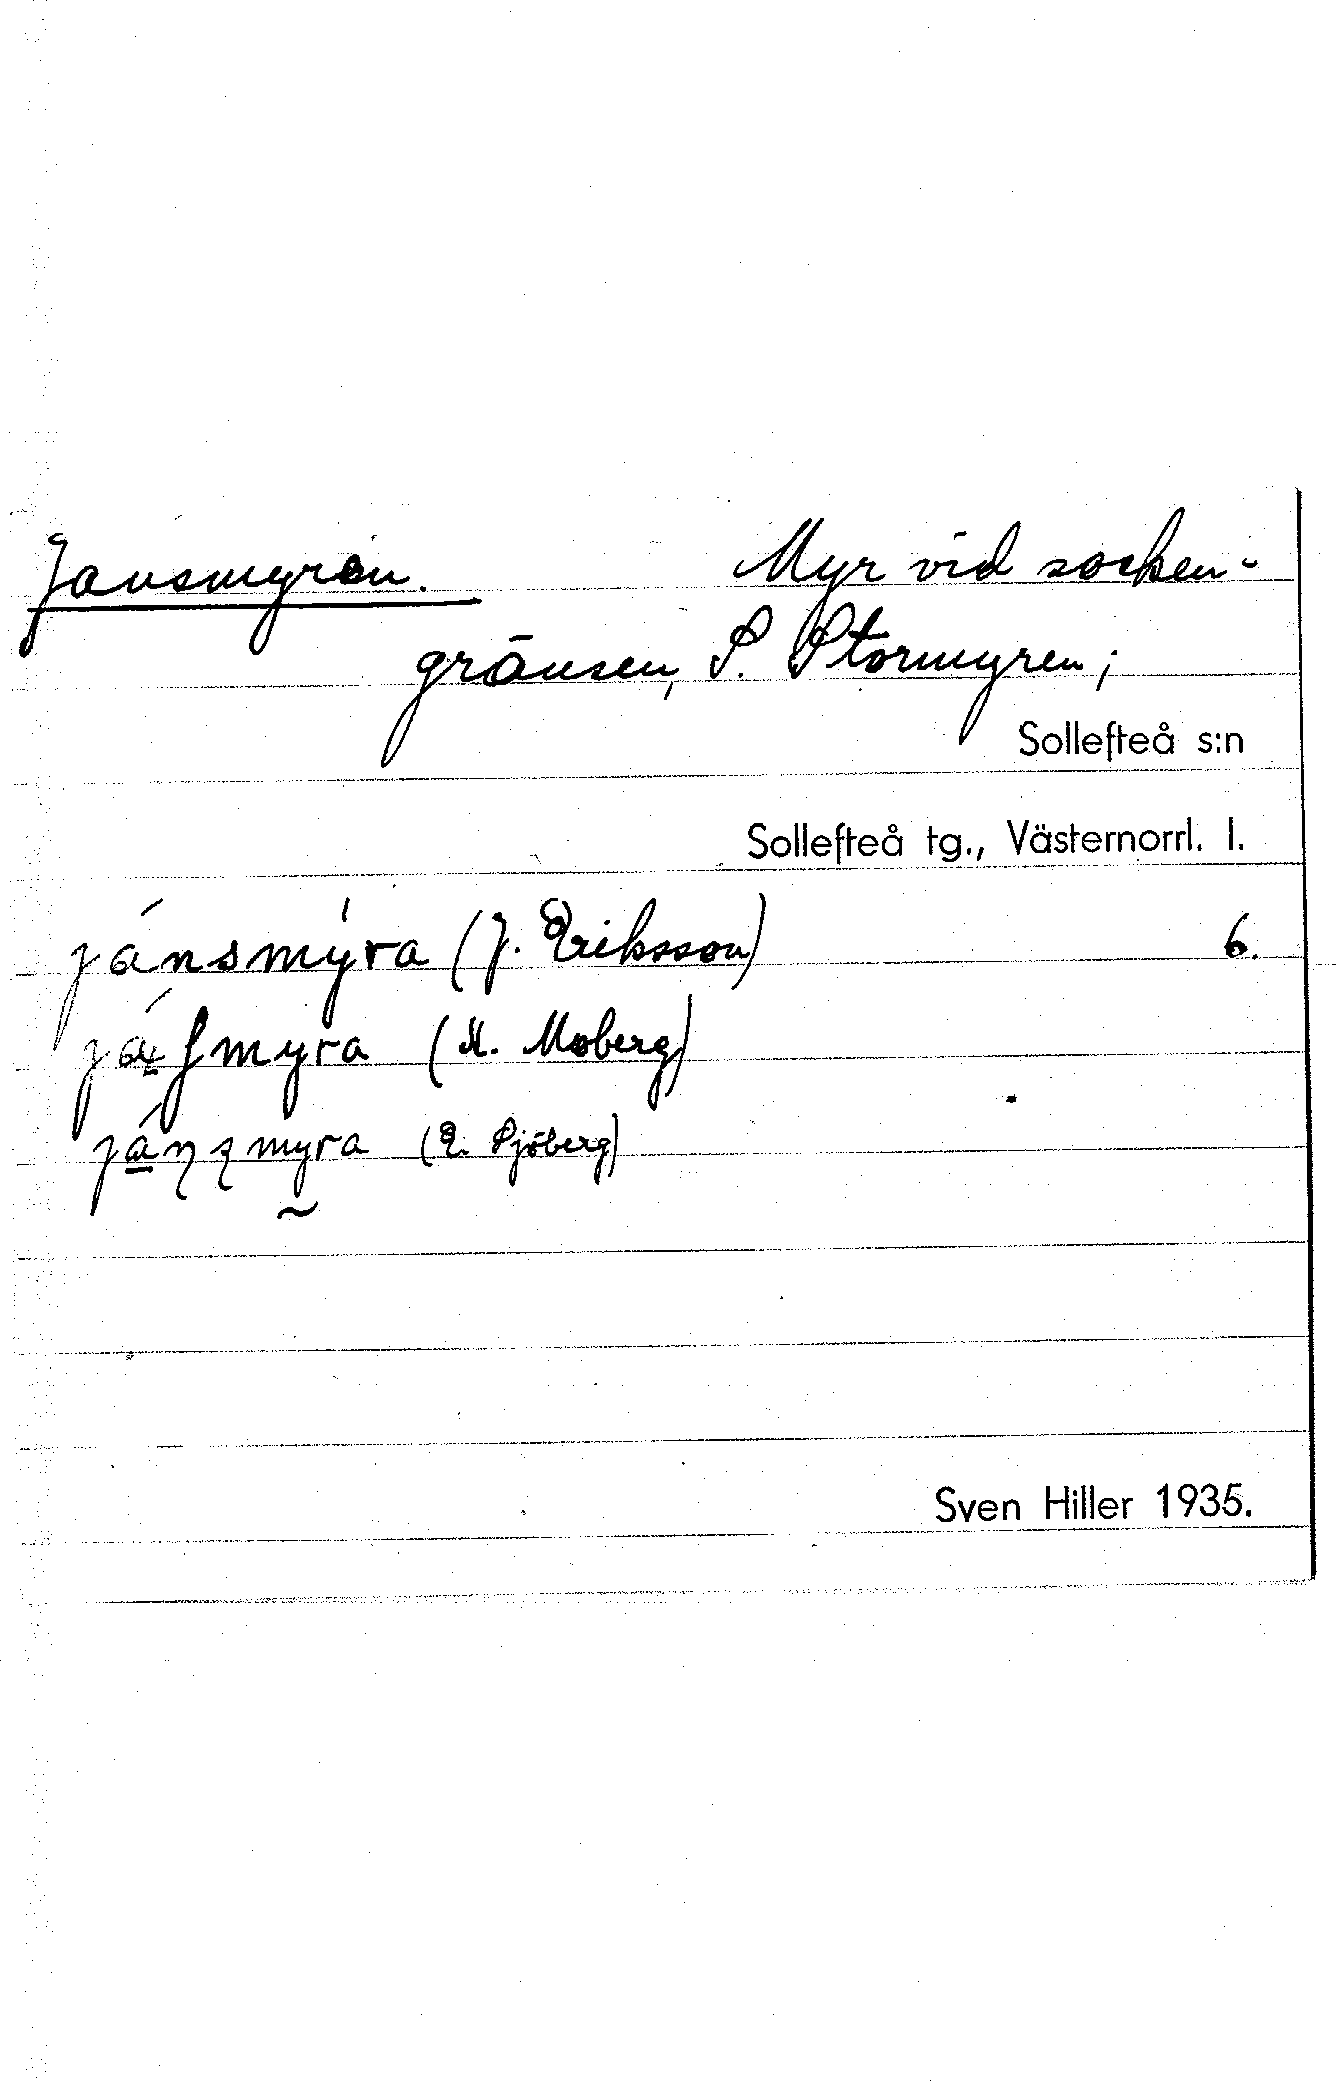 Jansmyren. Myr vid socken-
gränsen, S. Stormyren;
Sollefteå s:n
Sollefteå tg., Västernorrl. l.
jánsmyra (J. Eriksson) 6.
(M. Moberg)
(E. Sjöberg)
Sven Hiller 1935.